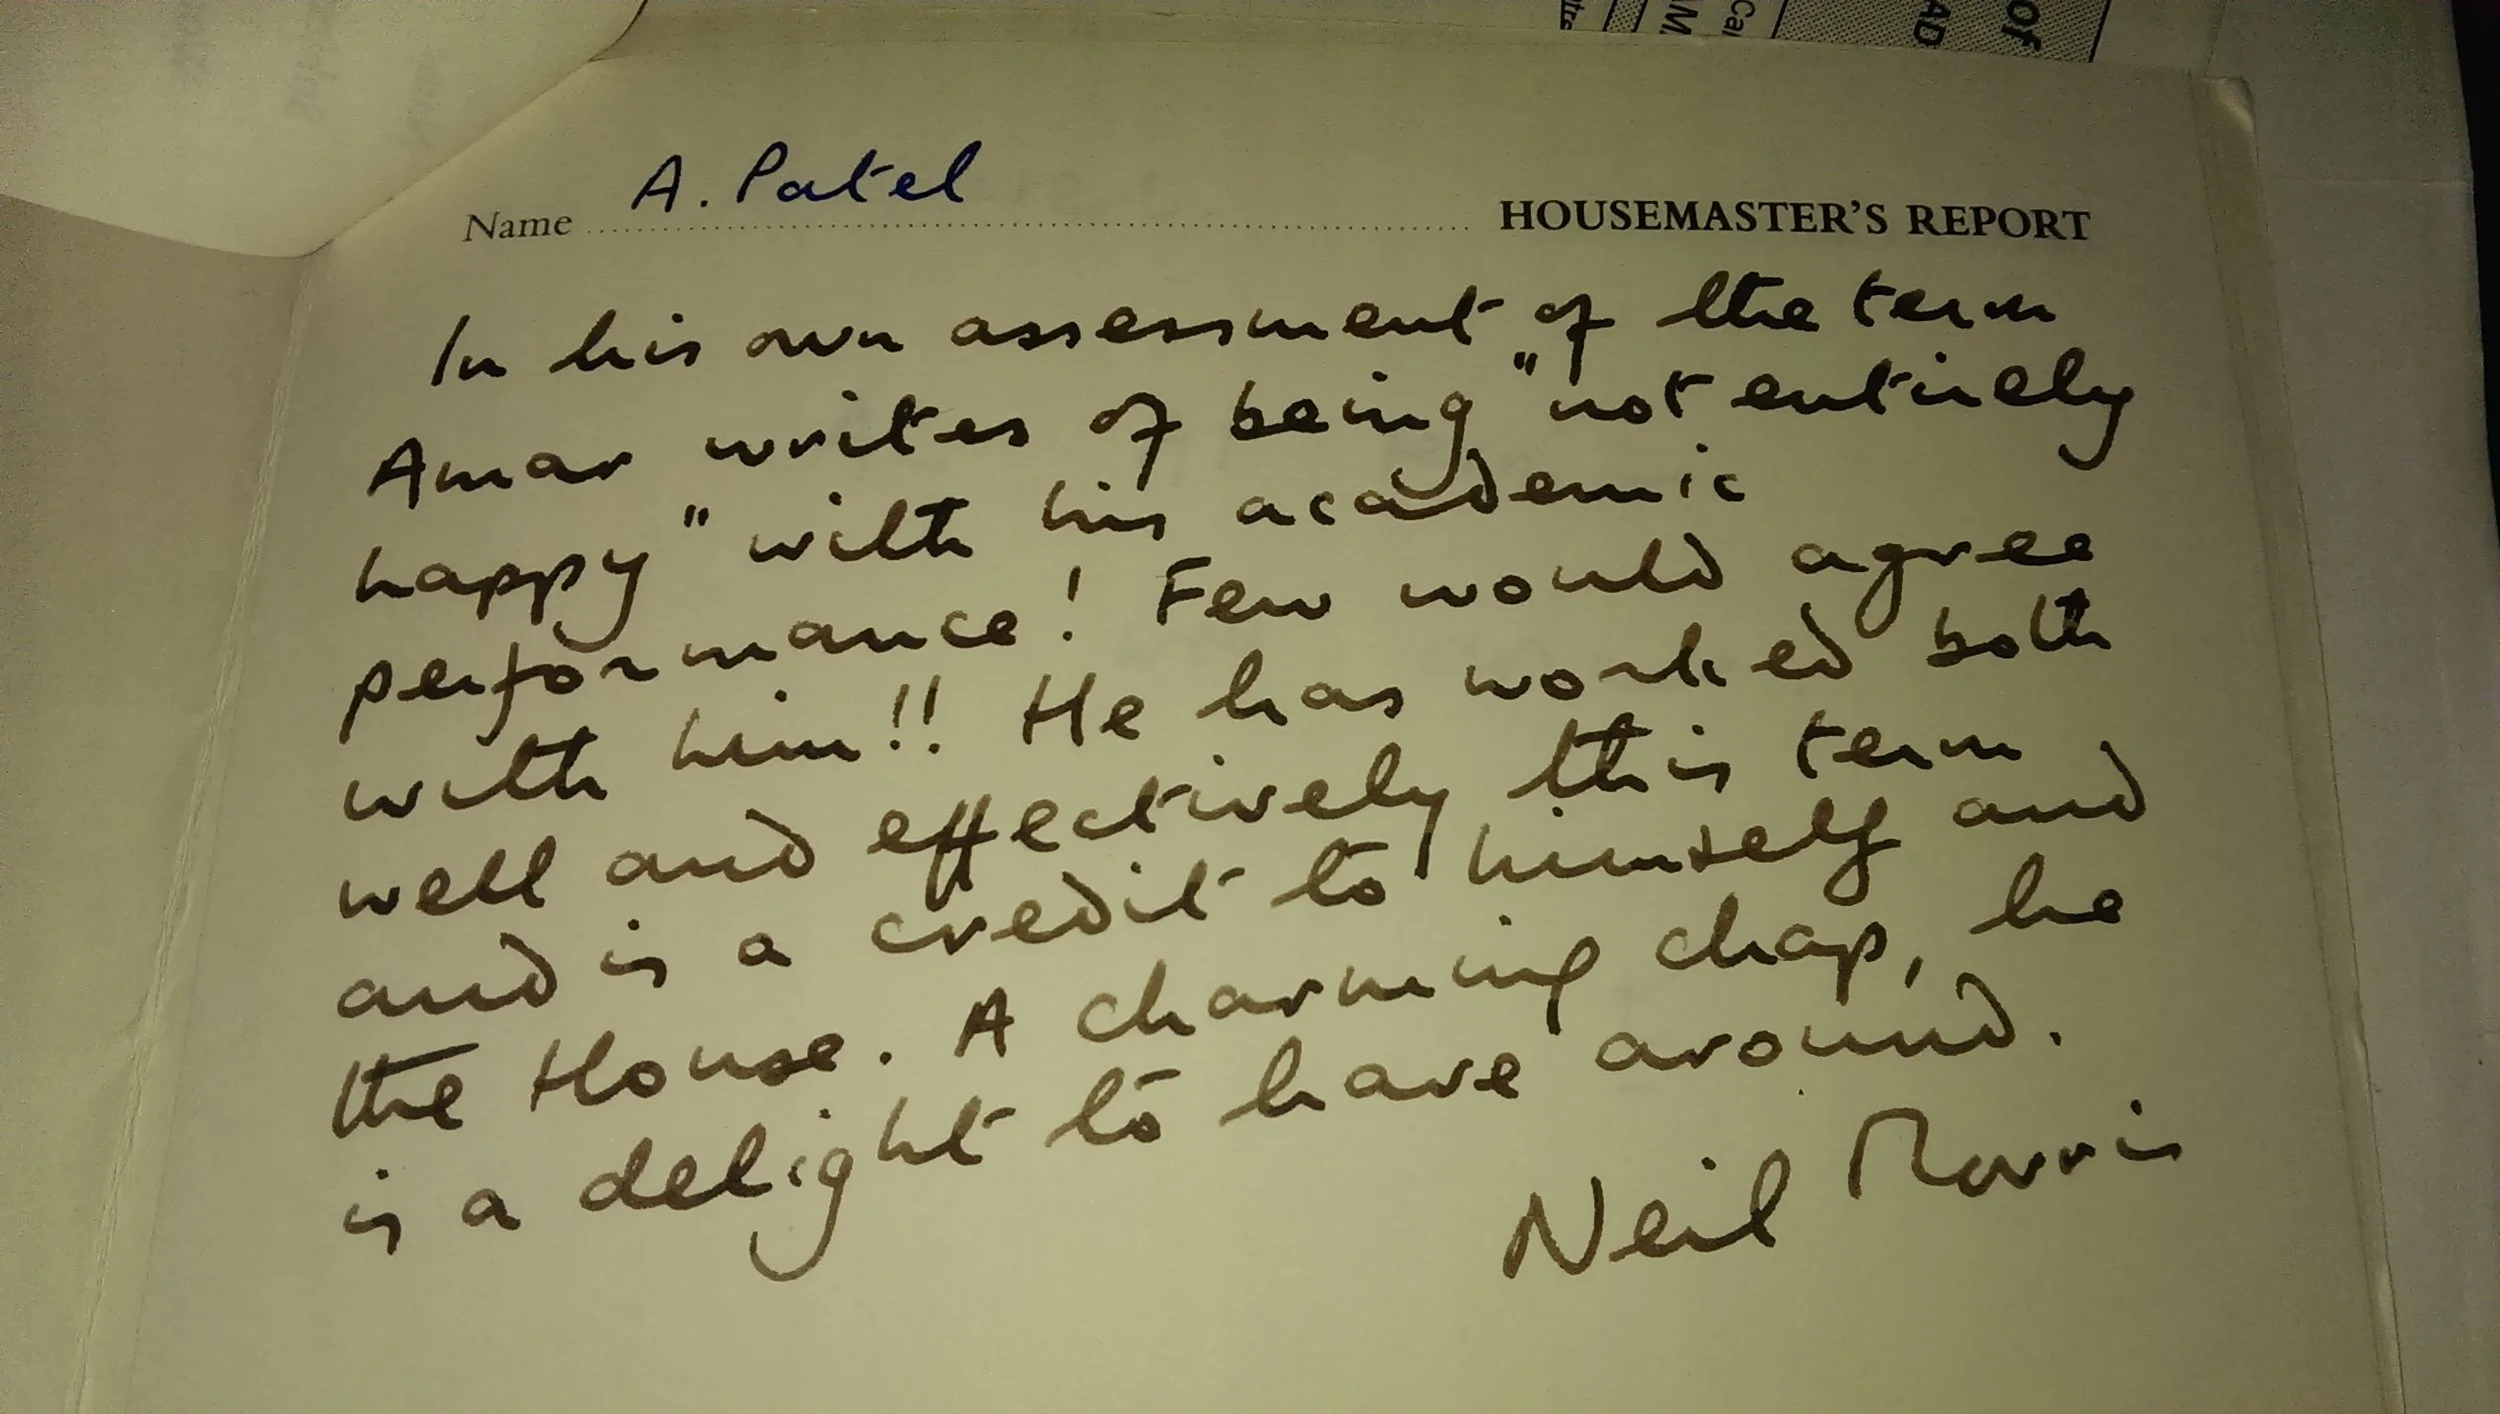 of
AD
Car
M
Name A. Patel HOUSEMASTER'S REPORT
In his own assessment of the term
Amar writes of being "not entirely
happy" with his academic
performance! Few would agree
with him!! He has worked both
well and effectively this term
and is a credit to himself and
the House. A charming chap, he
is a delight to have around.
Neil Morris